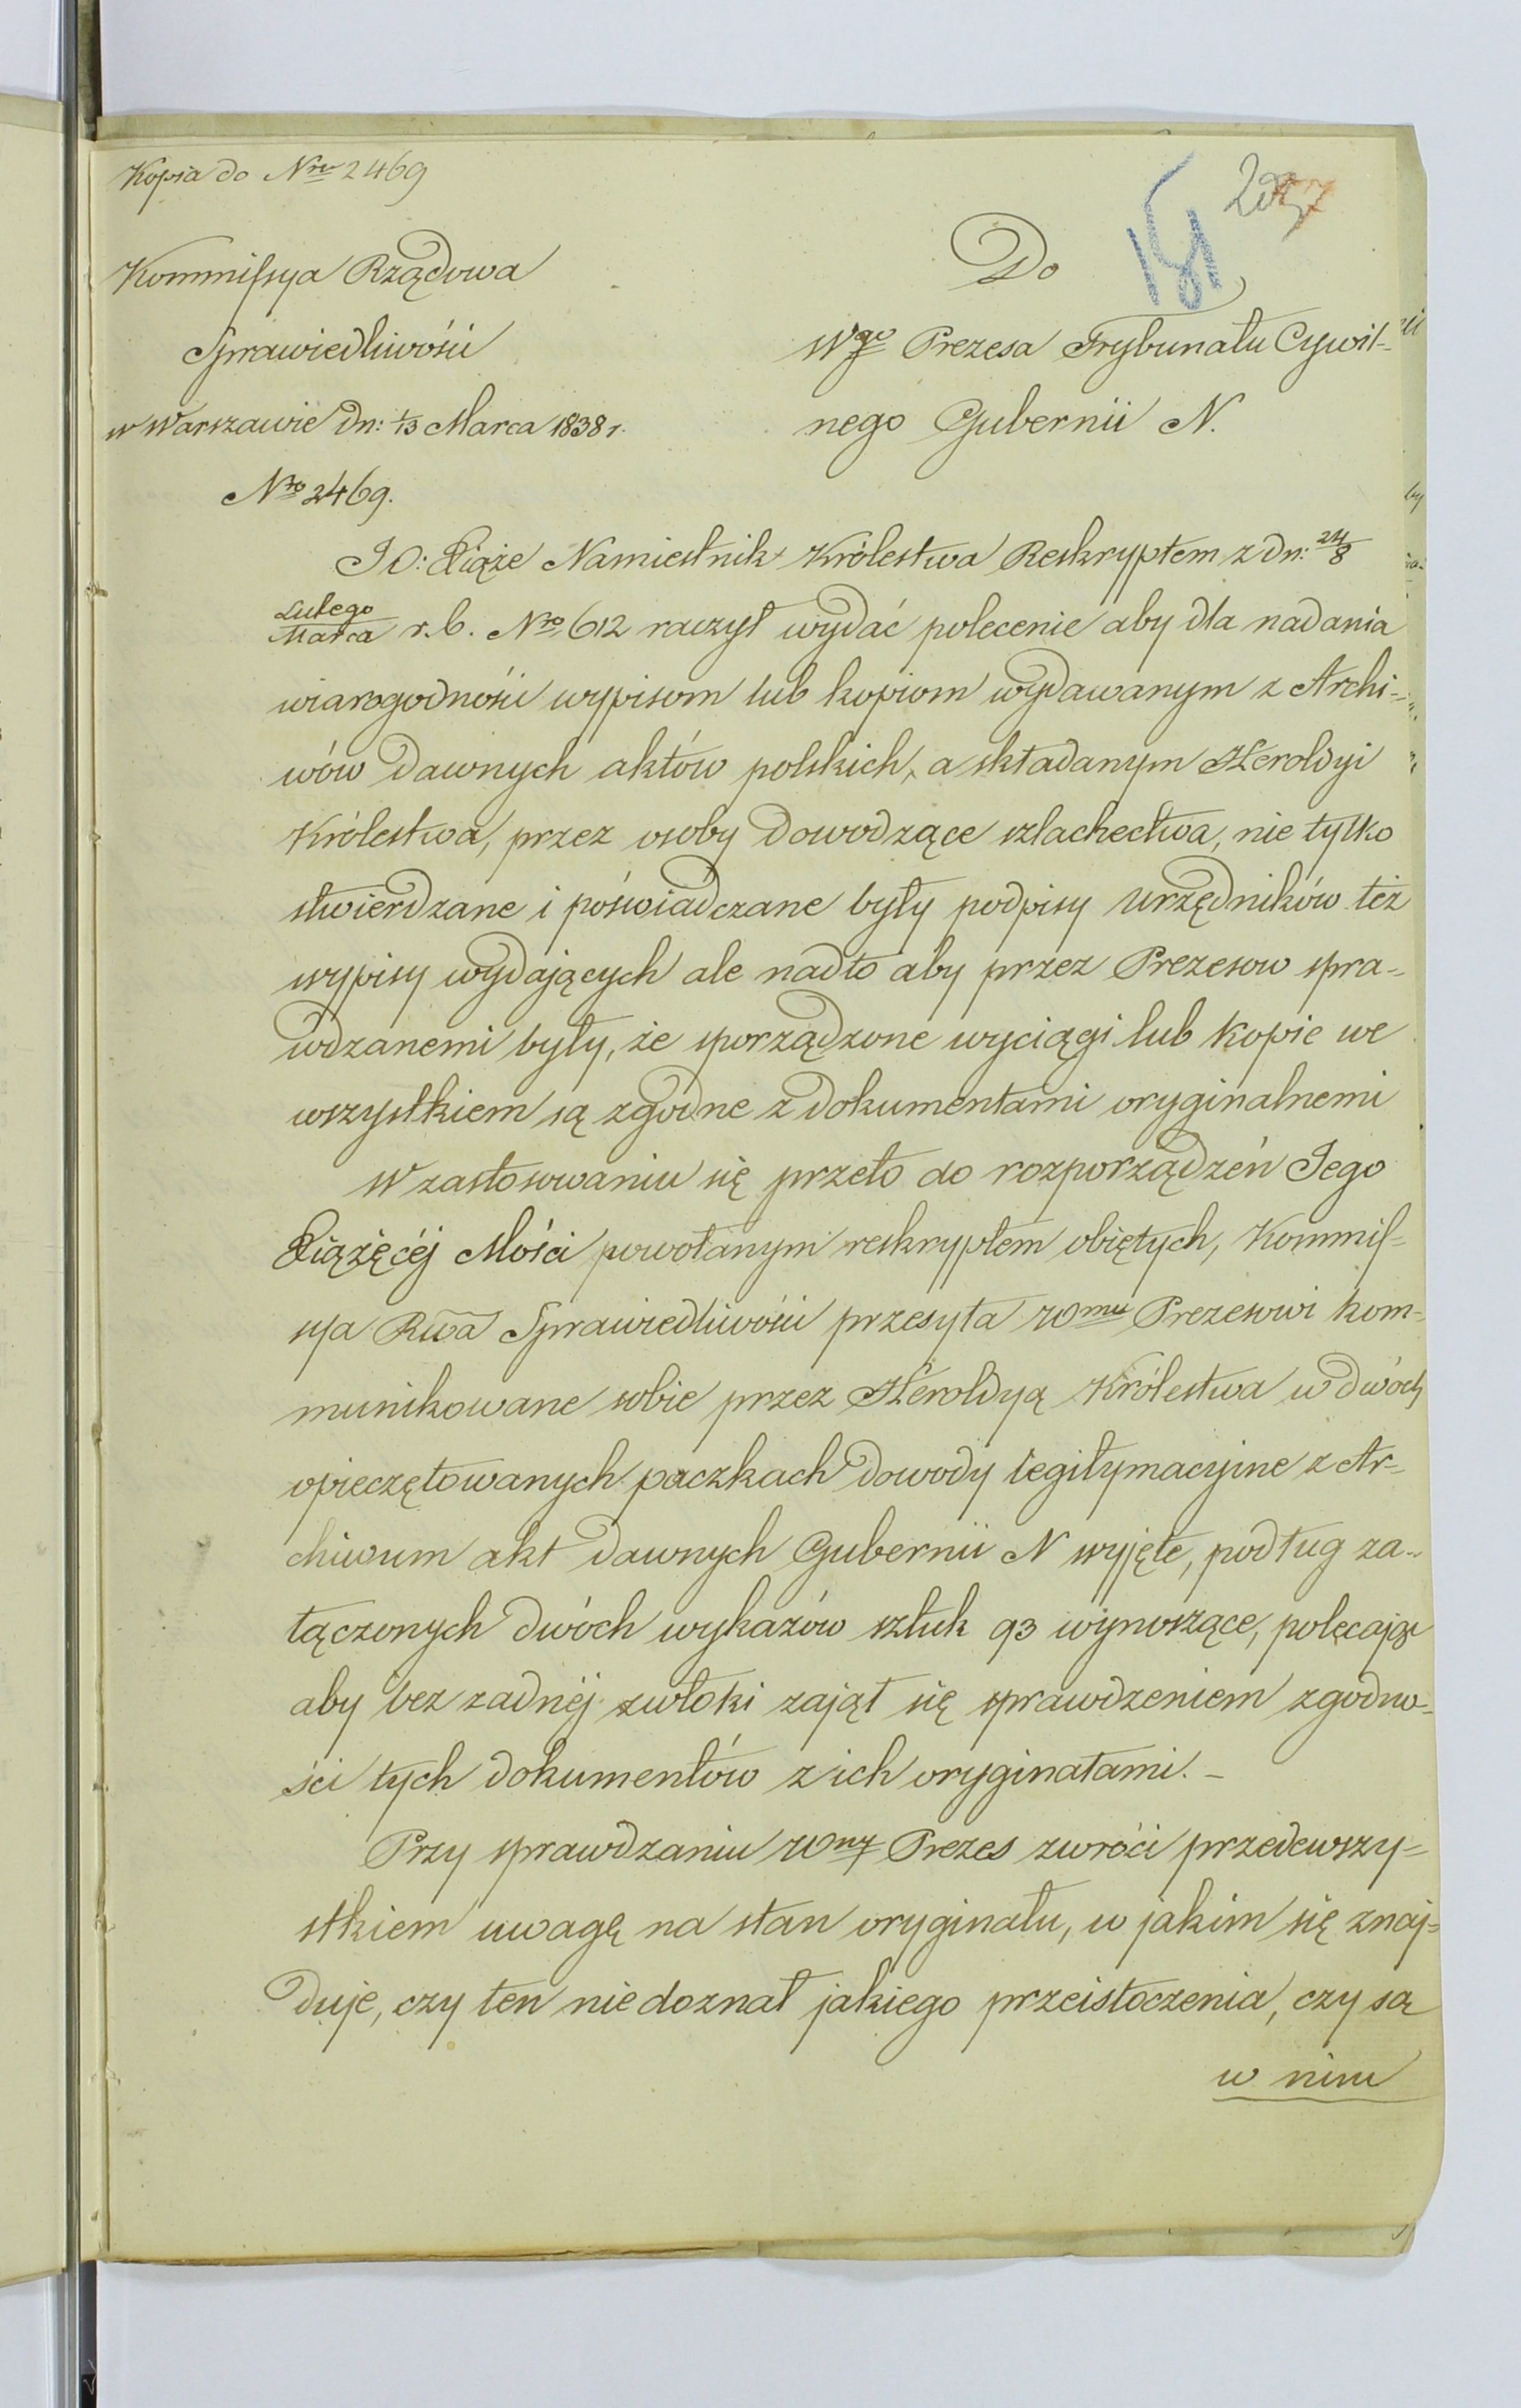 Kopia do Nru 2469
Kommissya Rządowa
Sprawiedliwości
w Warszawie dn: 1/13 Marca 1838 r.
Nro 2469.
Do
Wgo Prezesa Trybunału Cywil-
nego Gubernii N.
JO: Xiąże Namiestnik Królestwa Reskryptem z dn: 24/8
Lutego/Marca r.b. Nro 612 raczył wydać polecenie aby dla nadania
wiarogodności wypisom lub kopiom wydawanym z Archi-
wów dawnych aktów polskich, a składanym Heroldyi
Królestwa, przez osoby dowodzące szlachectwa, nie tylko
stwierdzane i poświadczane były podpisy urzędników też
wypisy wydających ale nadto aby przez Prezesow spra-
wdzanemi były, że sporządzone wyciągi lub kopie we
wszystkiem są zgodne z dokumentami oryginalnemi
W zastosowaniu się przeto do rozporządzeń Jego
Xiążęcéj Mości powołanym reskryptem obiętych, Kommis-
sya Rwa Sprawiedliwości przesyła Wmu Prezesowi kom-
munikowane sobie przez Heroldyą Królestwa w dwóch
opieczętowanych paczkach dowody legitymacyine z Ar-
chiwum akt dawnych Gubernii N wyjęte, podług za-
łączonych dwóch wykazów sztuk 93 wynoszące, polecając
aby bez zadnéj zwłoki zajął się sprawdzeniem zgodno-
ści tych dokumentów z ich oryginałami. -
Przy sprawdzaniu Wny Prezes zwróci przedewszy-
stkiem uwagę na stan oryginału, w jakim się znaj-
duje, czy ten nie doznał jakiego przeistoczenia, czy są
w nim